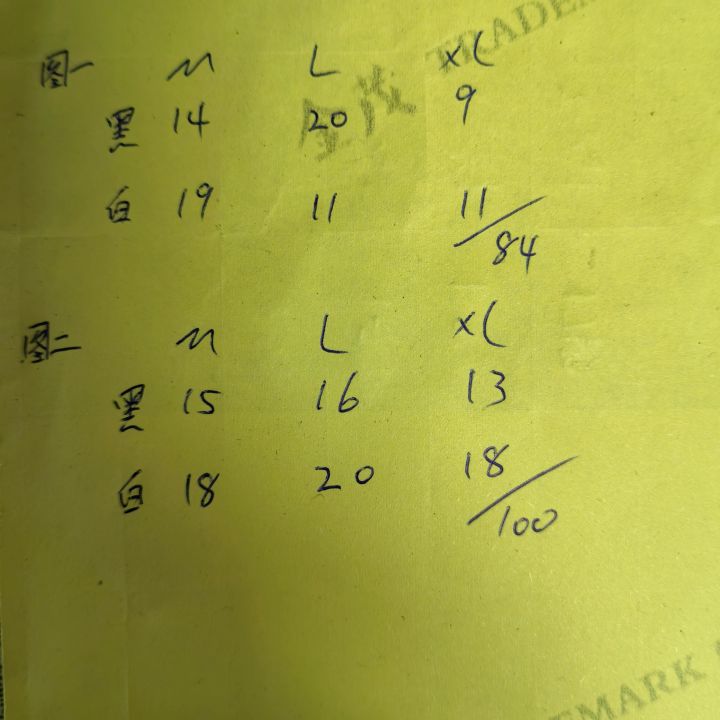 图一 M L XL
黑 14 20 9
白 19 11 11/84
图二 M L XL
黑 15 16 13
白 18 20 18/100
TRADEM
EMARK